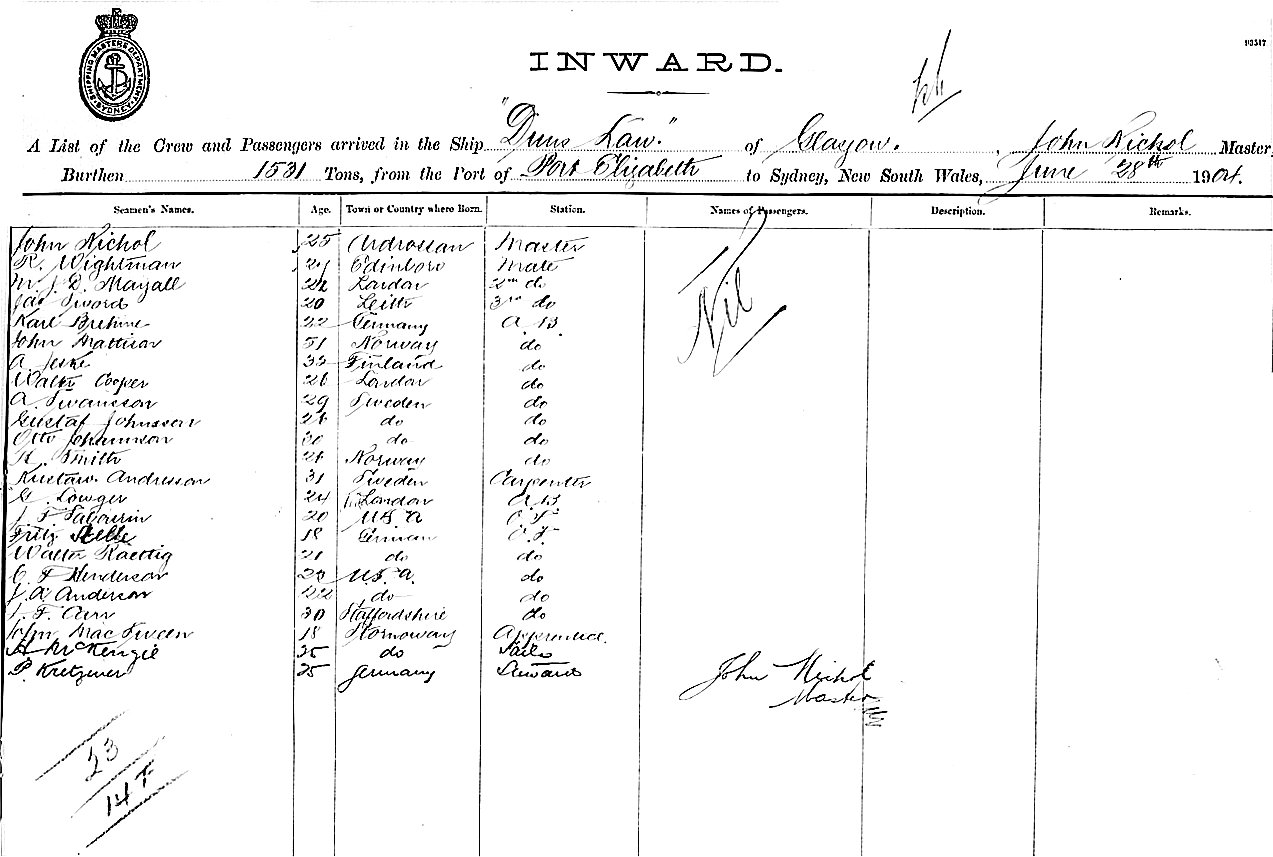 93517
SHIPPING MASTERS DEPARTMENT SYDNEY
INWARD.
A List of the Crew and Passengers arrived in the Ship "Duns Law." of Glasgow. , John Nichol Master,
Burthen 1531 Tons, from the Port of Port Elizabeth to Sydney, New South Wales, June 28th 1904.
Seamen's Names. Age. Town or Country where Born. Station. Names of Passengers. Description. Remarks.
John Nichol 25 Ardrossan Master
R. Wightman Edinboro Mate
M. J. D. Mayall London 2nd do
Jas Sword 20 Leith 3rd do
Karl Brehme 22 Germany A.B.
John Mattison 51 Norway do
A. Jeske 33 Finland do
Walter Cooper 26 London do
A. Swansson 29 Sweden do
Gustaf Johnsson do do
Otto Johannson 30 do do
K. Smith Norway do
Andersson 31 Sweden Carpenter
G. Lowger 24 London A.B
J. F. 20 U.S.A O.S
Fritz Stelle 18 German O.S.
Walter Raettig 21 do do
C. F. Henderson 23 U.S.A. do
J. A. Anderson 22 do do
J. F. Carr 30 Staffordshire do
John MacSween 18 Stornoway Apprentice.
A McKenzie 25 do Sailor
P. Kretzmer 25 Germany Steward
Nil
John Nichol
Master
23
14 F